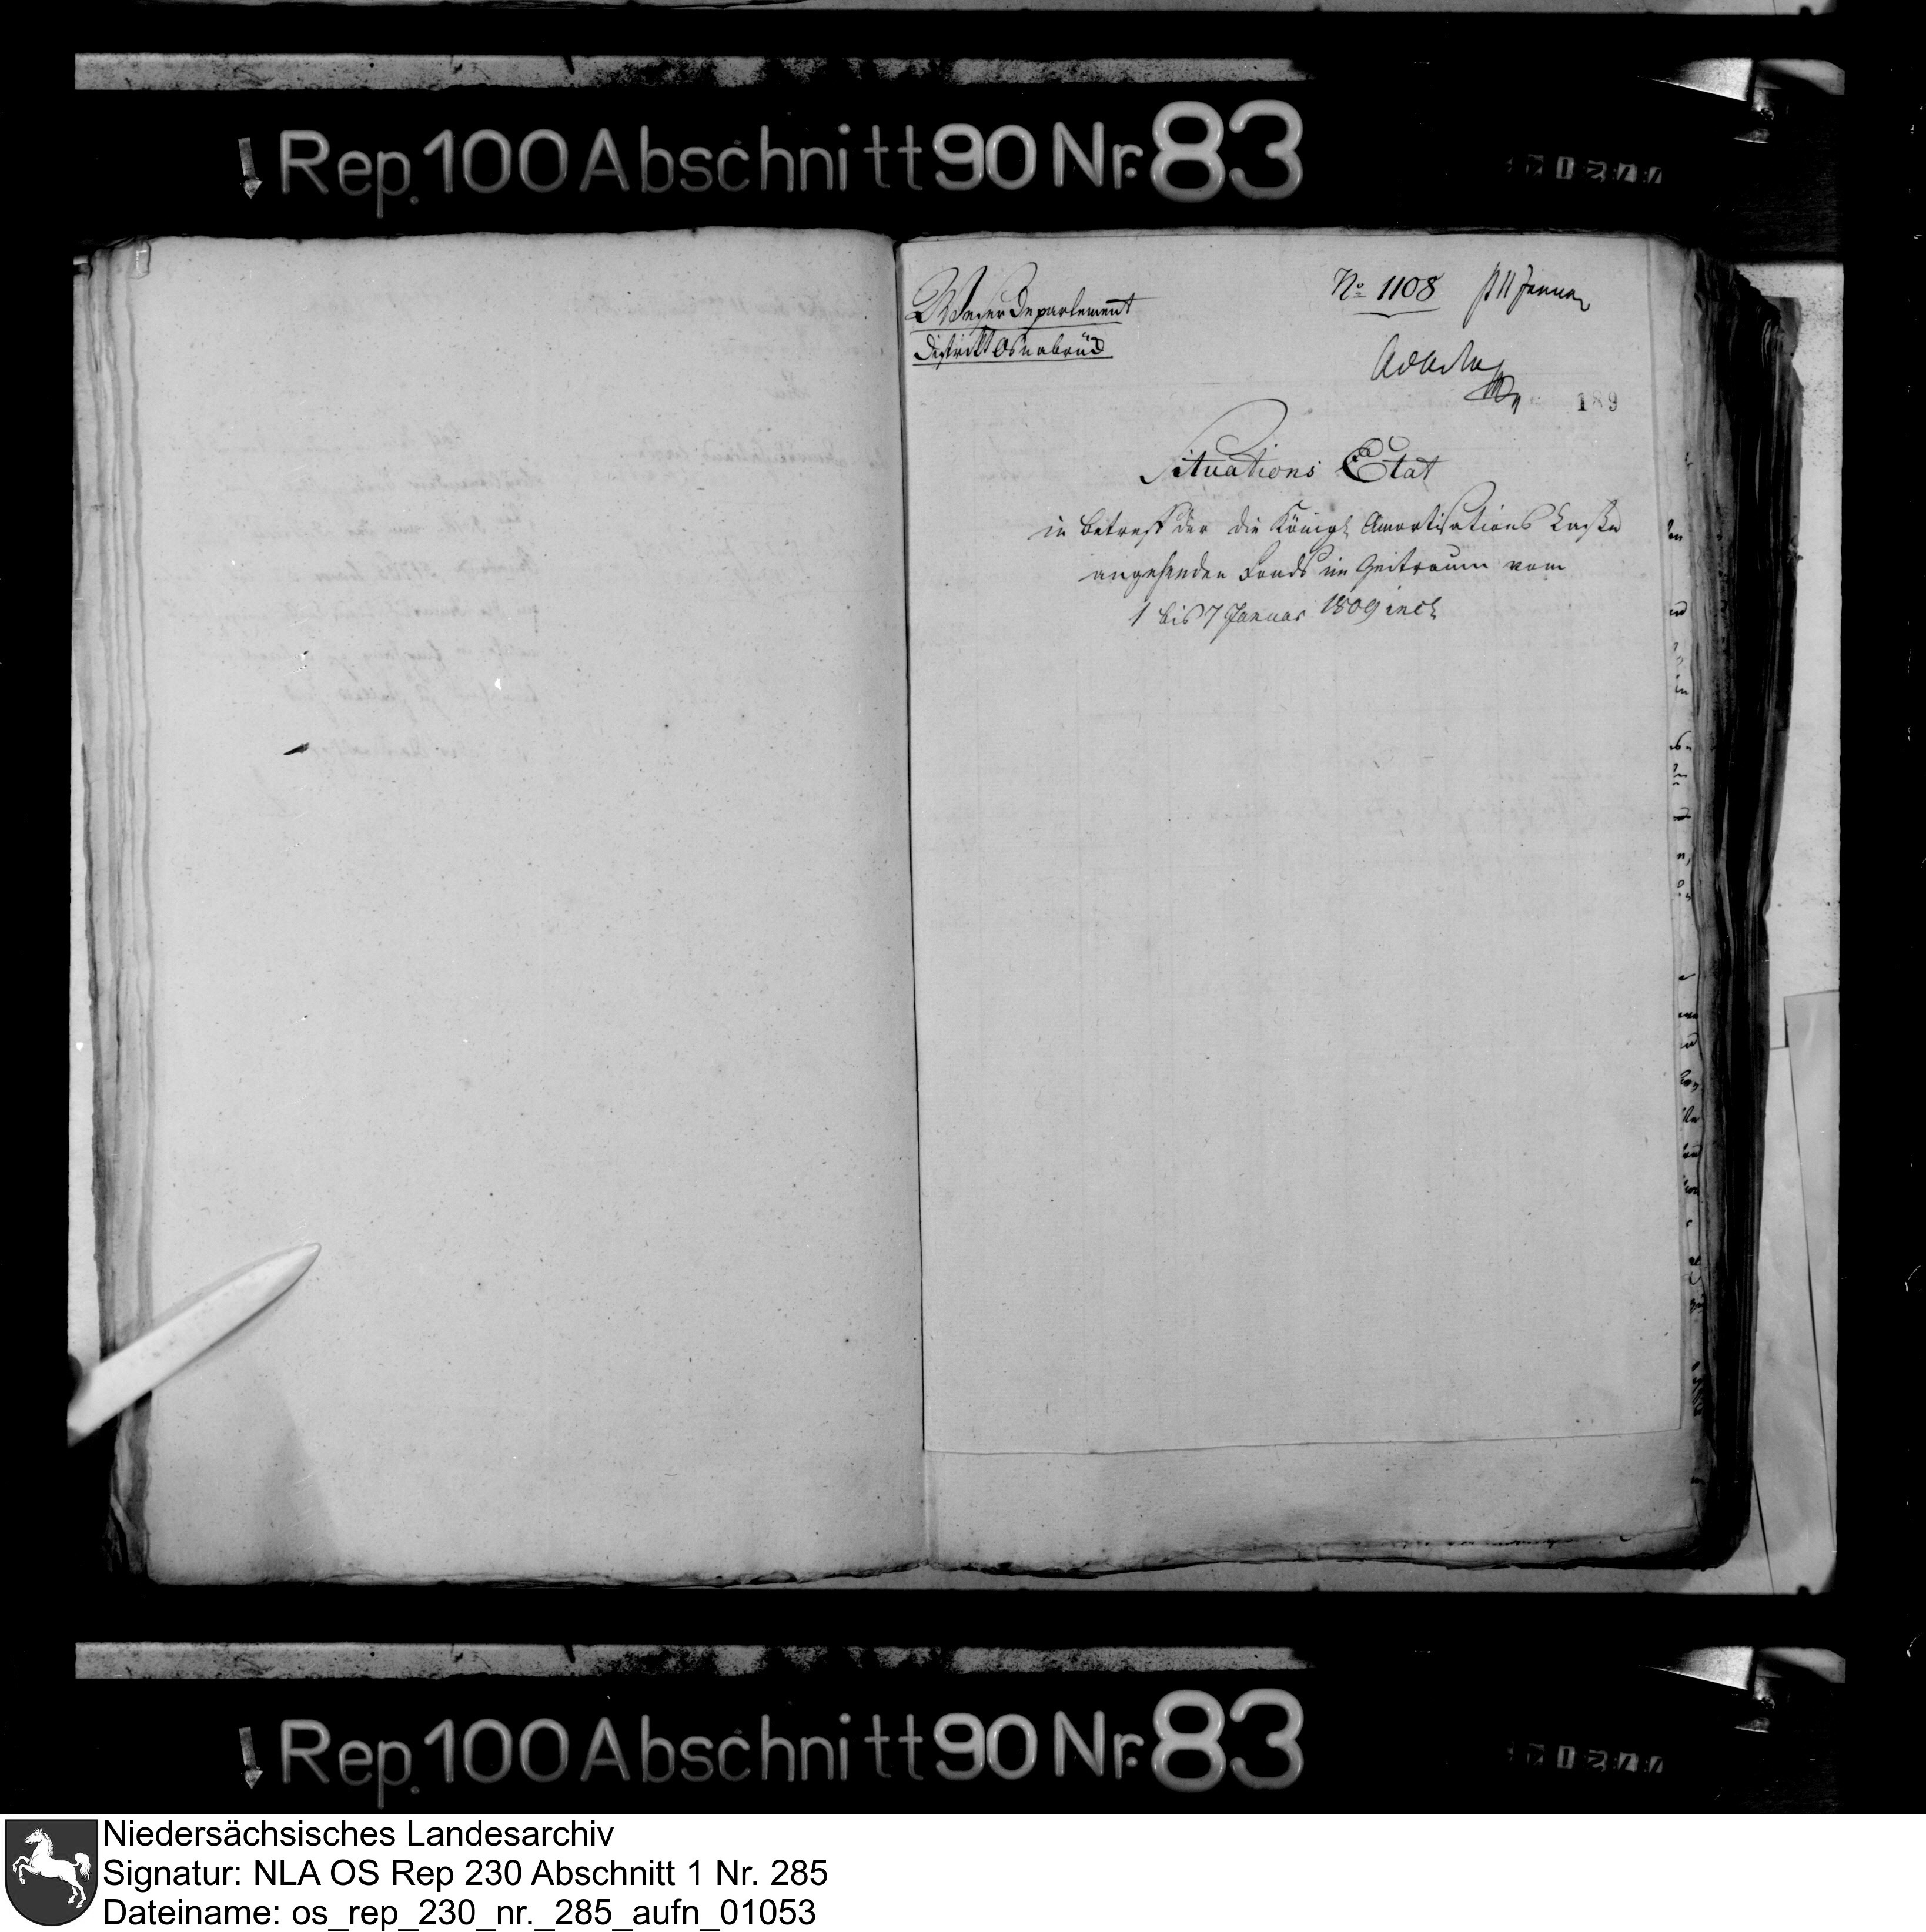 Rep. 100 Abschnitt 90 Nr. 83
Weser Departement
District Osnabrück
No 1108
11 Januar
189
Situations Etat
in betreff der die Königl Amortisations Casse
angehenden Fonds im Zeitraum vom
1 bis 7 Januar 1809 incl
Rep. 100 Abschnitt 90 Nr. 83
Niedersächsisches Landesarchiv
Signatur: NLA OS Rep 230 Abschnitt 1 Nr. 285
Dateiname: os_rep_230_nr._285_aufn_01053